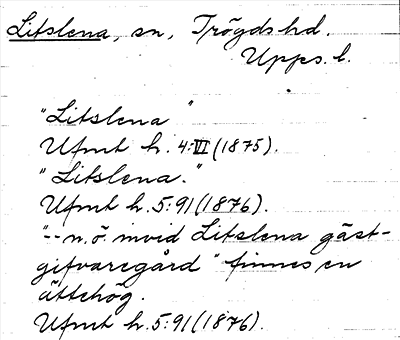 Litslena, sn, Trögds hd.
Upps. l.
"Litslena"
Ufmt h. 4:VI (1875).
"Litslena."
Ufmt h. 5:91 (1876).
"-- n. ö. invid Litslena gäst-
gifvaregård" finnes en
ättehög.
Ufmt h. 5:91 (1876).